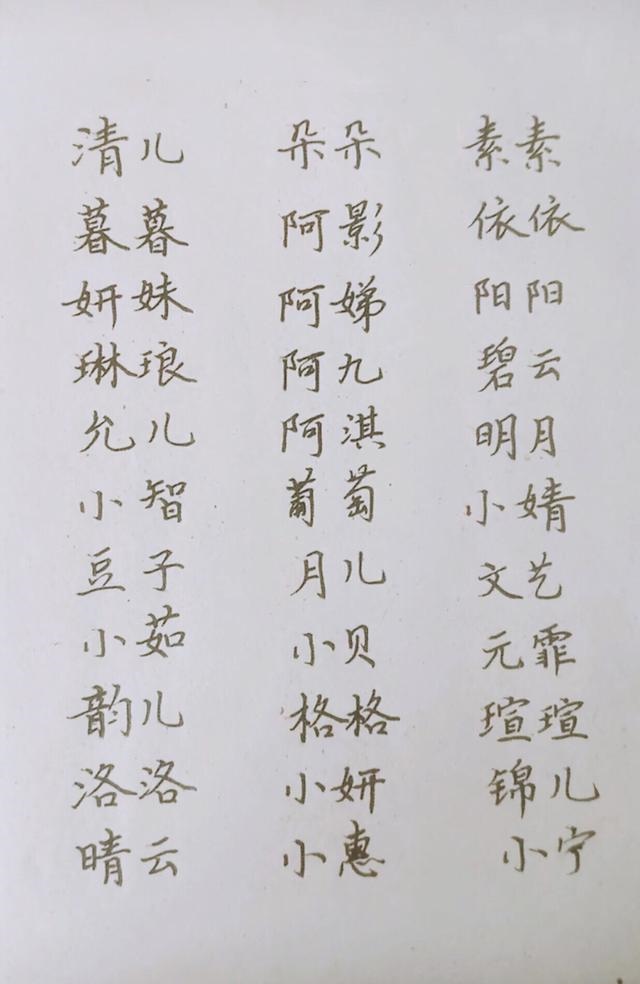 清儿 朵朵 素素
暮暮 阿影 依依
妍妹 阿娣 阳阳
琳琅 阿九 碧云
允儿 阿淇 明月
小智 葡萄 小婧
豆子 月儿 文艺
小茹 小贝 元霏
韵儿 格格 瑄瑄
洛洛 小妍 锦儿
晴云 小惠 小宁